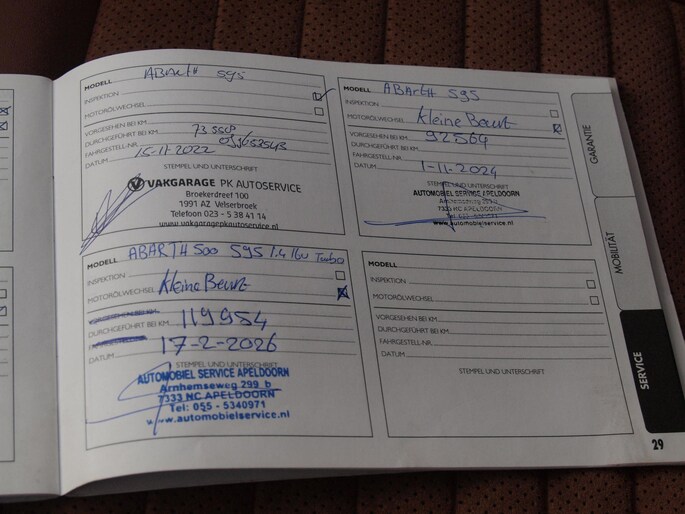 MODELL ABARTH 595
INSPEKTION
MOTORÖLWECHSEL
VORGESEHEN BEI KM
DURCHGEFÜHRT BEI KM
FAHRGESTELL-NR.
DATUM 15-11-2022
STEMPEL UND UNTERSCHRIFT
VAKGARAGE PK AUTOSERVICE
Broekerdreef 100
1991 AZ Velserbroek
Telefoon 023 - 5 38 41 14
www.vakgaragepkautoservice.nl
MODELL ABARTH 595
INSPEKTION
MOTORÖLWECHSEL Kleine Beurt
VORGESEHEN BEI KM
DURCHGEFÜHRT BEI KM 92564
FAHRGESTELL-NR.
DATUM 1-11-2024
STEMPEL UND UNTERSCHRIFT
AUTOMOBIEL SERVICE APELDOORN
Arnhemseweg 299 b
7333 NC APELDOORN
Tel: 055 - 5340971
www.automobielservice.nl
MODELL ABARTH 500 595 1.4 16v Turbo
INSPEKTION
MOTORÖLWECHSEL Kleine Beurt
VORGESEHEN BEI KM
DURCHGEFÜHRT BEI KM 119954
FAHRGESTELL-NR.
DATUM 17-2-2026
STEMPEL UND UNTERSCHRIFT
AUTOMOBIEL SERVICE APELDOORN
Arnhemseweg 299 b
7333 NC APELDOORN
Tel: 055 - 5340971
www.automobielservice.nl
MODELL
INSPEKTION
MOTORÖLWECHSEL
VORGESEHEN BEI KM
DURCHGEFÜHRT BEI KM
FAHRGESTELL-NR.
DATUM
STEMPEL UND UNTERSCHRIFT
GARANTIE
MOBILITÄT
SERVICE
29